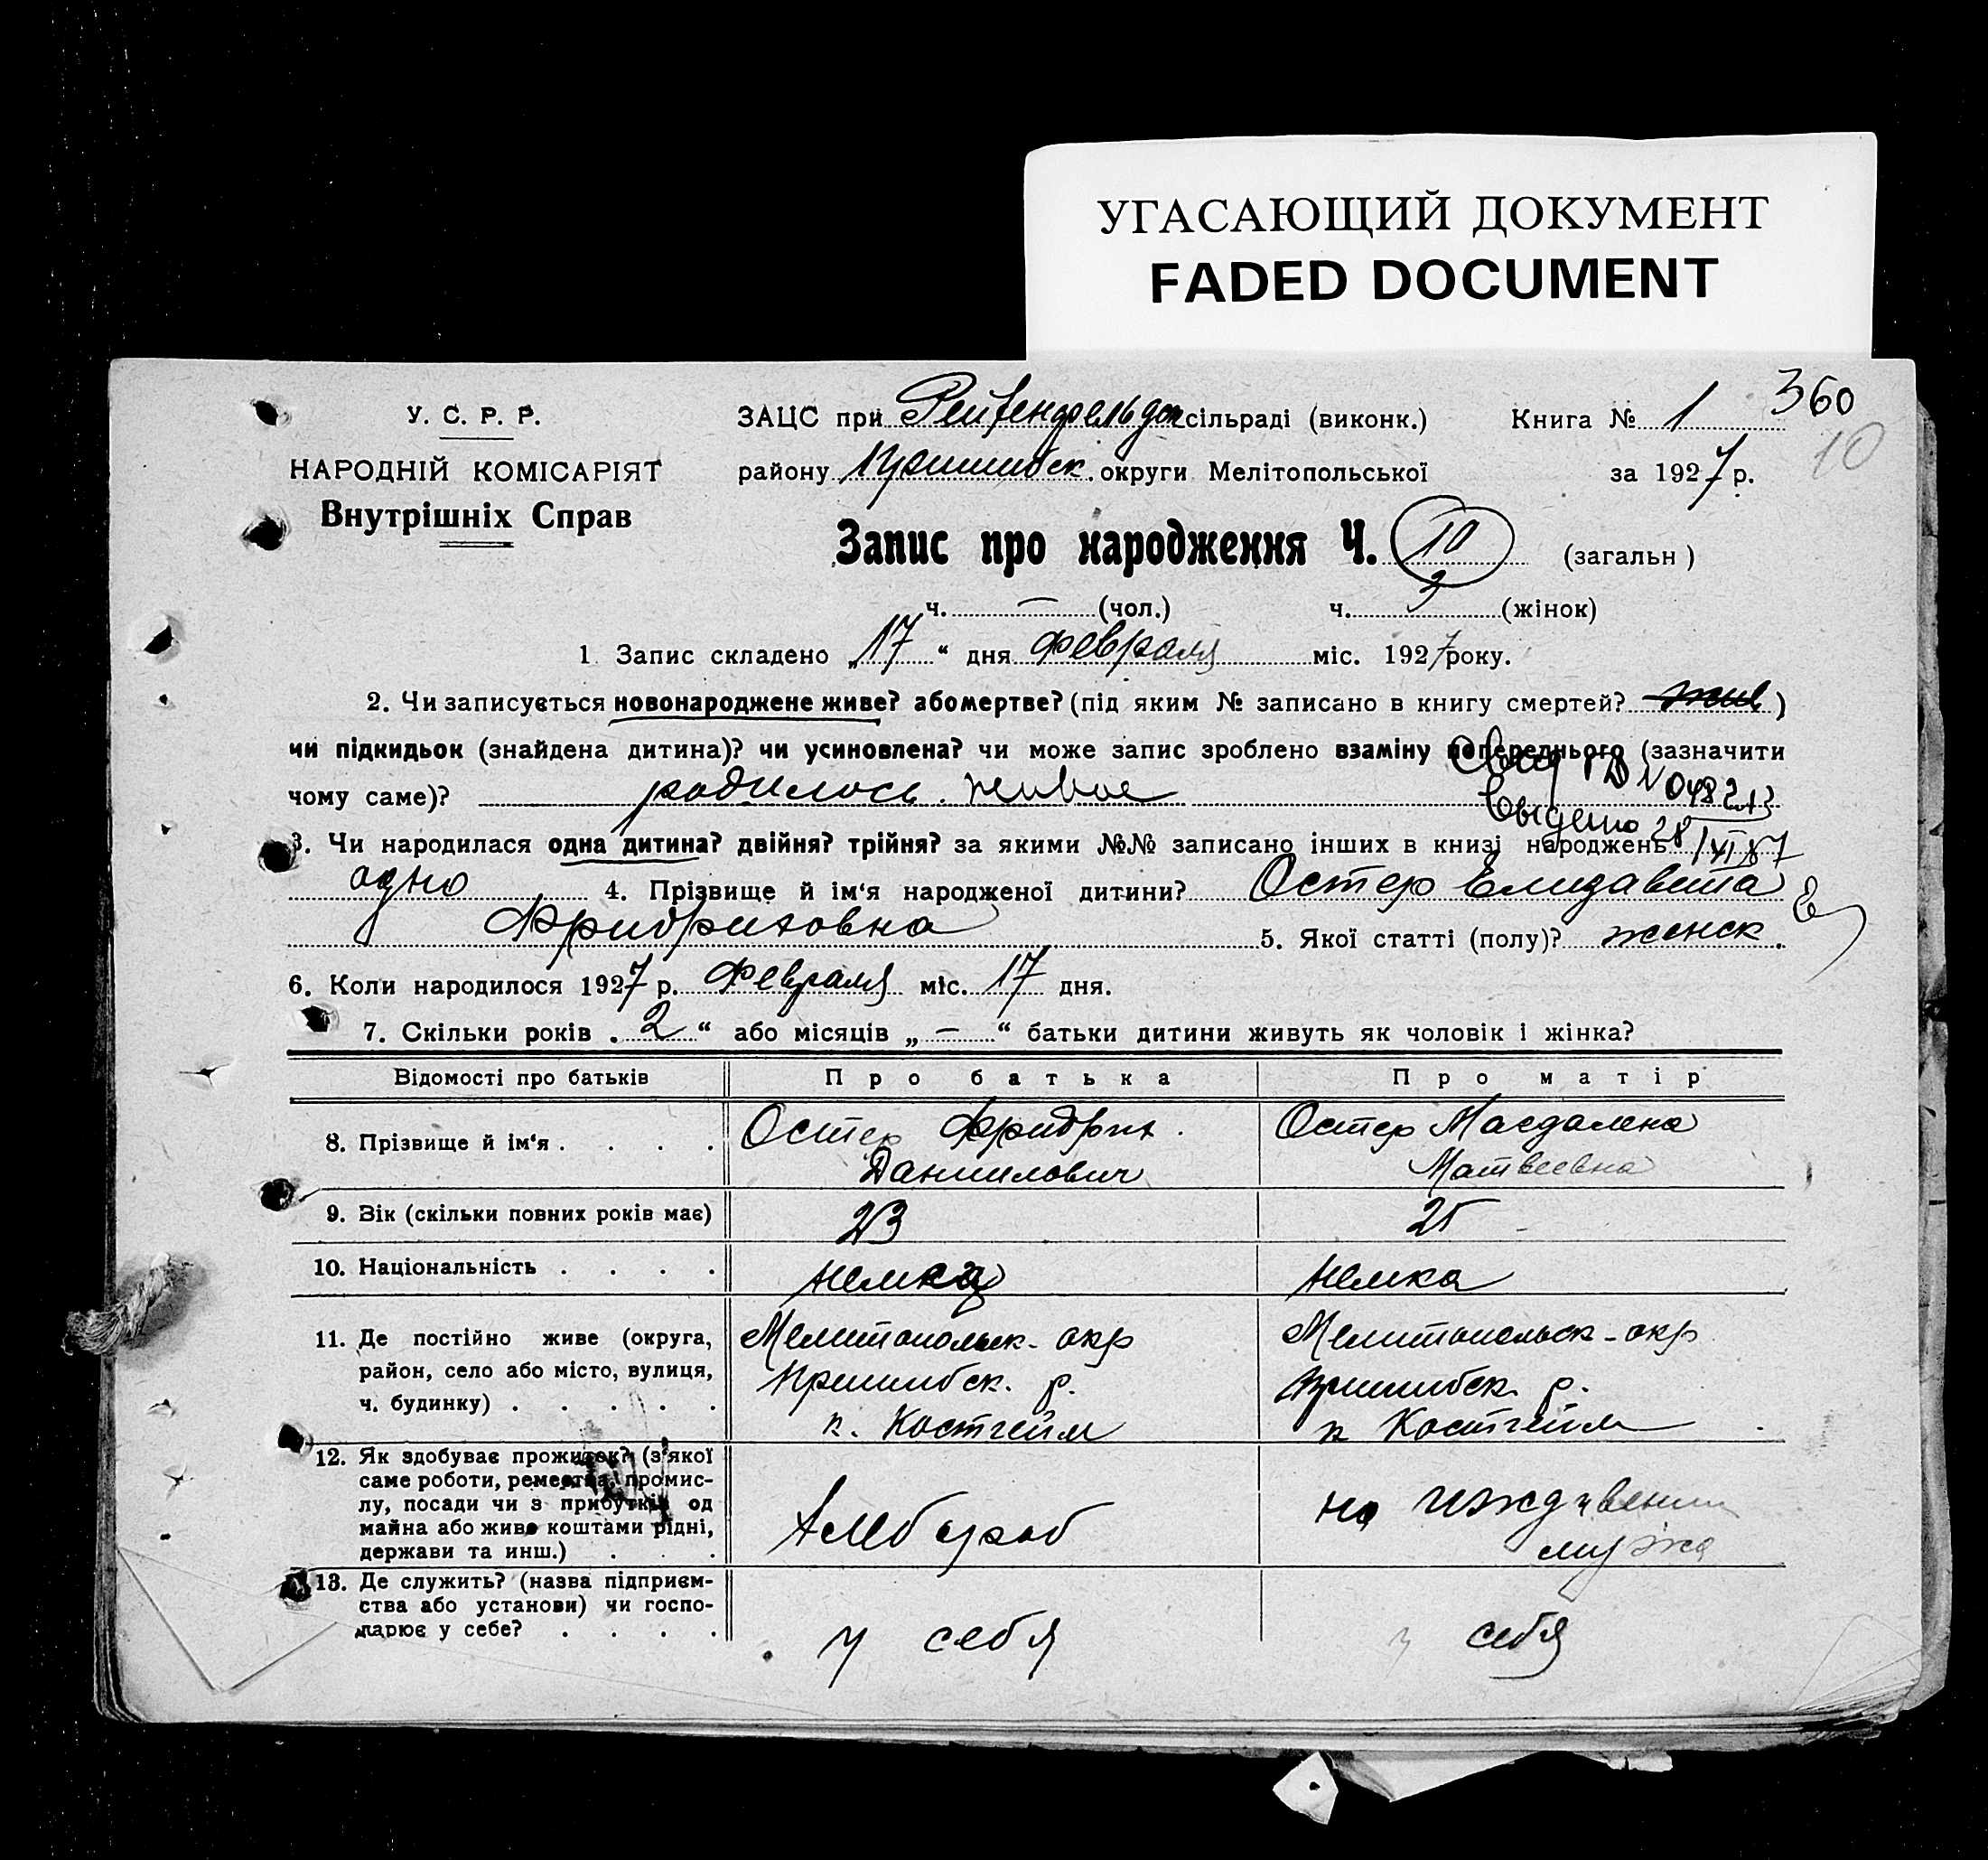 УГАСАЮЩИЙ ДОКУМЕНТ
FADED DOCUMENT
360
10
У. С. Р. Р.
НАРОДНІЙ КОМІСАРІЯТ
Внутрішніх Справ
ЗАЦС при сільраді (виконк.) Книга № 1
району Пришибск. округи Мелітопольської за 1927 р.
Запис про народження Ч. 10 (загальн )
ч. — (чол.) ч. 3 (жінок)
1 Запис складено „17“ дня февраля міс. 1927 року.
2. Чи записується новонароджене живе? або мертве? (під яким № записано в книгу смертей? )
чи підкидьок (знайдена дитина)? чи усиновлена? чи може запис зроблено взаміну попереднього (зазначити
чому саме)? родилось живое
3. Чи народилася одна дитина? двійня? трійня? за якими №№ записано інших в книзі народжень
одно 4. Прізвище й ім'я народженої дитини? Остер Елизавета
Фридриховна 5. Якої статті (полу)? женск.
6. Коли народилося 1927 р. февраля міс. 17 дня.
7. Скільки років „2“ або місяців „—“ батьки дитини живуть як чоловік і жінка?
Відомості про батьків Про батька Про матір
8. Прізвище й ім'я . . . . Остер Фридрих Остер Магдалена
Даниилович Матвеевна
9. Вік (скільки повних років має) 23 25
10. Національність . . . . немка
11. Де постійно живе (округа, Мелитопольск-окр Мелитопольск-окр
район, село або місто, вулиця, Пришибск. р. Пришибск. р.
ч. будинку) . . . . . к. Костгейм к Костгейм
12. Як здобуває прожиток? (з'якої
саме роботи, ремества, промис-
лу, посади чи з прибутків од
майна або живе коштами рідні,
держави та инш.) . . .
на иждивении
мужа
13. Де служить? (назва підприєм-
ства або установи) чи госпо-
дарює у себе? . . . . у себя у себя